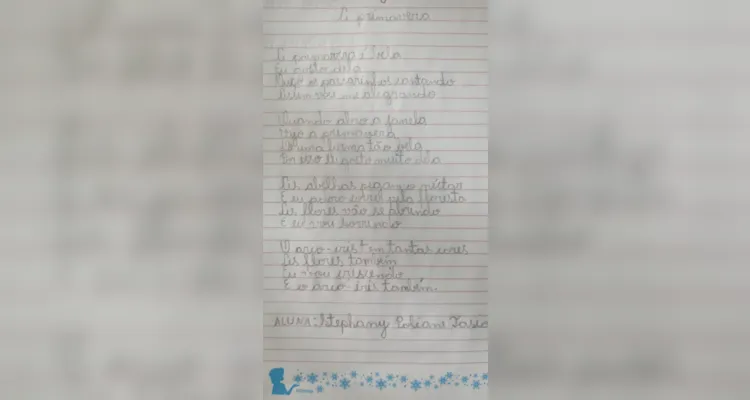 A primavera
A primavera é bela
Eu gosto dela
Vejo os passarinhos cantando
Assim vou me alegrando
Quando abro a janela
Vejo a primavera
De uma forma tão bela
Por isso eu gosto muito dela
As abelhas pegam o néctar
E eu adoro correr pela floresta
As flores vão se abrindo
E eu vou sorrindo
O arco-iris tem tantas cores
As flores também
Eu vou crescendo
E o arco-iris também.
ALUNA: Stephany